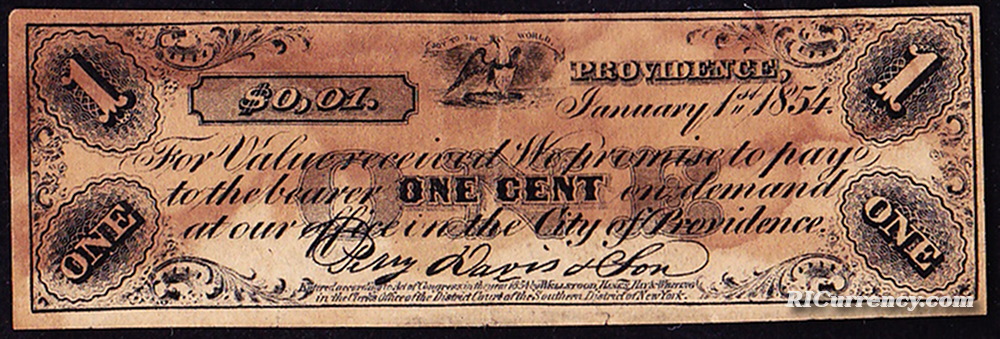 JOY TO THE WORLD
1
1
$0,01.
PROVIDENCE,
January 1st 1854.
For Value received We promise to pay
to the bearer ONE CENT on demand
at our office in the City of Providence.
ONE
ONE
ONE
Perry Davis & Son
Entered according to Act of Congress in the year 1854 by WELLSTOOD, HANKS, HAY & WHITING
in the Clerks Office of the District Court of the Southern District of New York.
RICurrency.com